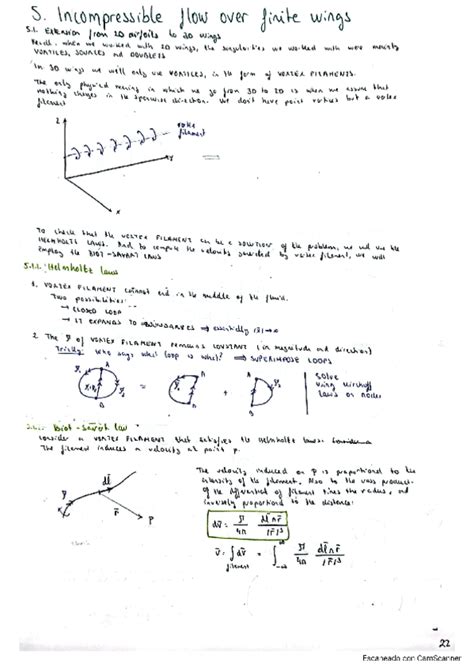 5. Incompressible flow over finite wings
5.1. Extension from 2D airfoils to 3D wings
Recall: when we worked with 2D wings, the singularities we worked with were mainly
VORTICES, SOURCES and DOUBLETS
In 3D wings we will only use VORTICES, in the form of VORTEX FILAMENTS.
The only physical meaning in which we go from 3D to 2D is when we assume that
nothing changes in the spanwise direction. We don't have point vortices but a vortex
filament
z
vortex
filament
y
x
To check that the VORTEX FILAMENT can be a SOLUTION of the problem, we will use the
HELMHOLTZ LAWS. And to compute the velocity generated by vortex filament, we will
employ the BIOT-SAVART LAWS
5.1.1. Helmholtz laws
1. VORTEX FILAMENT cannot end in the middle of the fluid.
Two possibilities:
→ CLOSED LOOP
→ IT EXPANDS TO BOUNDARIES ⇒ essentially |z| → ∞
2. The Γ of VORTEX FILAMENT remains CONSTANT (in magnitude and direction)
Who says what loop is what? ⇒ SUPERIMPOSE LOOPS
A A A
= +
B B B
solve
using kirchoff
laws on nodes
Biot-savart law
Consider a VORTEX FILAMENT that satisfies the Helmholtz laws.
The filament induces a velocity at point P.
dl̄
Γ
r̄
P
The velocity induced on P is proportional to the
intensity of the filament. Also to the cross product
of the differential of filament times the radius, and
inversely proportional to the distance:
dv̄ = Γ/4π dl̄∧r̄/|r̄|³
v̄ = ∫ dv̄ = ∫ Γ/4π dl̄∧r̄/|r̄|³
filament -∞ ∞
22
Escaneado con CamScanner